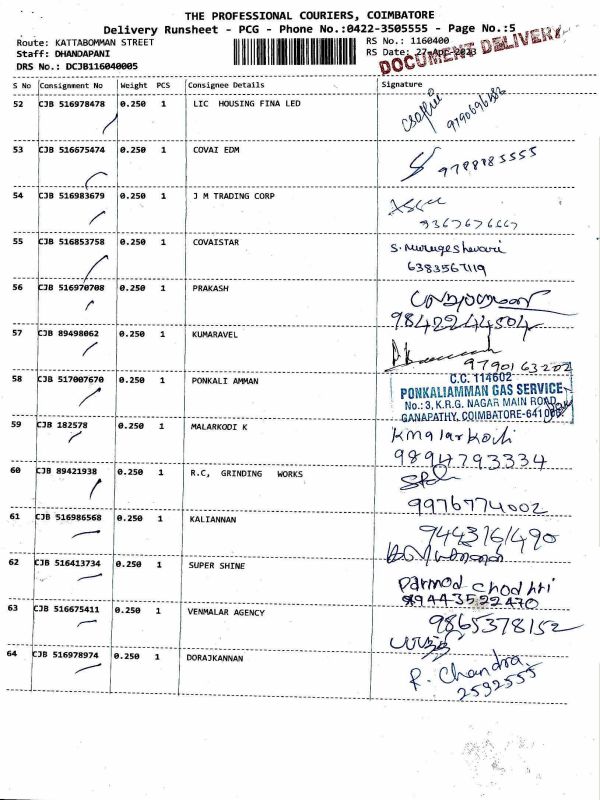 THE PROFESSIONAL COURIERS, COIMBATORE
Delivery Runsheet - PCG - Phone No.:0422-3505555 - Page No.:5
Route: KATTABOMMAN STREET RS No.: 1160400
Staff: DHANDAPANI RS Date: 27-Apr-2023
DOCUMENT DELIVERY
DRS No.: DCJB116040005
S No Consignment No Weight PCS Consignee Details Signature
52 CJB 516978478 0.250 1 LIC HOUSING FINA LED
9790696882
53 CJB 516675474 0.250 1 COVAI EDM
9788885555
54 CJB 516983679 0.250 1 J M TRADING CORP
9367676667
55 CJB 516853758 0.250 1 COVAISTAR S. Murugeshwari
6383567119
56 CJB 516970708 0.250 1 PRAKASH
9842244504
57 CJB 89498062 0.250 1 KUMARAVEL
9790163202
58 CJB 517007670 0.250 1 PONKALI AMMAN
C.C. 114602
PONKALIAMMAN GAS SERVICE
No.: 3, K.R.G. NAGAR MAIN ROAD,
GANAPATHY, COIMBATORE-641006.
59 CJB 182578 0.250 1 MALARKODI K Kmalarkodi
9894793334
60 CJB 89421938 0.250 1 R.C, GRINDING WORKS
9976774002
61 CJB 516986568 0.250 1 KALIANNAN
9443161490
62 CJB 516413734 0.250 1 SUPER SHINE Parmod Chodhri
9443522470
63 CJB 516675411 0.250 1 VENMALAR AGENCY 9865378152
64 CJB 516978974 0.250 1 DORAJKANNAN R. Chandra
2592555